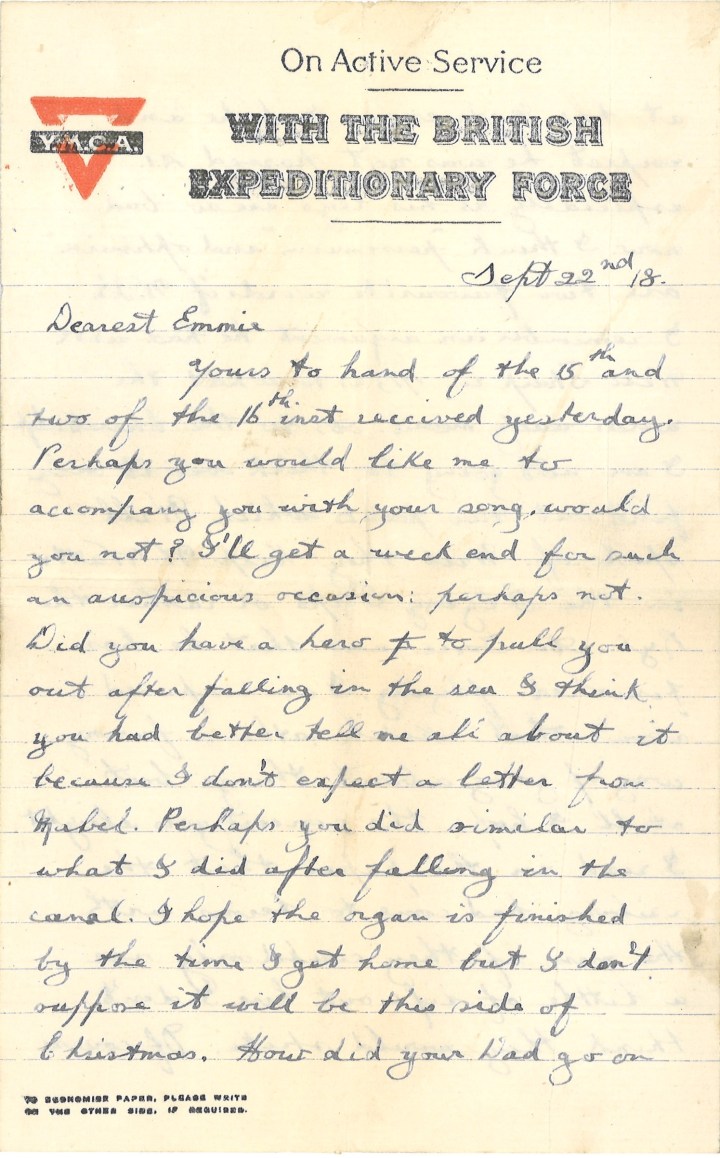 On Active Service
Y.M.C.A.
WITH THE BRITISH
EXPEDITIONARY FORCE
Sept 22nd 18.
Dearest Emmie
Yours to hand of the 15th and
two of the 16th inst received yesterday.
Perhaps you would like me to
accompany you with your song, would
you not? I'll get a week end for such
an auspicious occasion: perhaps not.
Did you have a hero to pull you
out after falling in the sea I think
you had better tell me all about it
because I don't expect a letter from
Mabel. Perhaps you did similar to
what I did after falling in the
canal. I hope the organ is finished
by the time I get home but I don't
suppose it will be this side of
Christmas. How did your Dad go on
TO ECONOMISE PAPER, PLEASE WRITE
ON THE OTHER SIDE, IF REQUIRED.